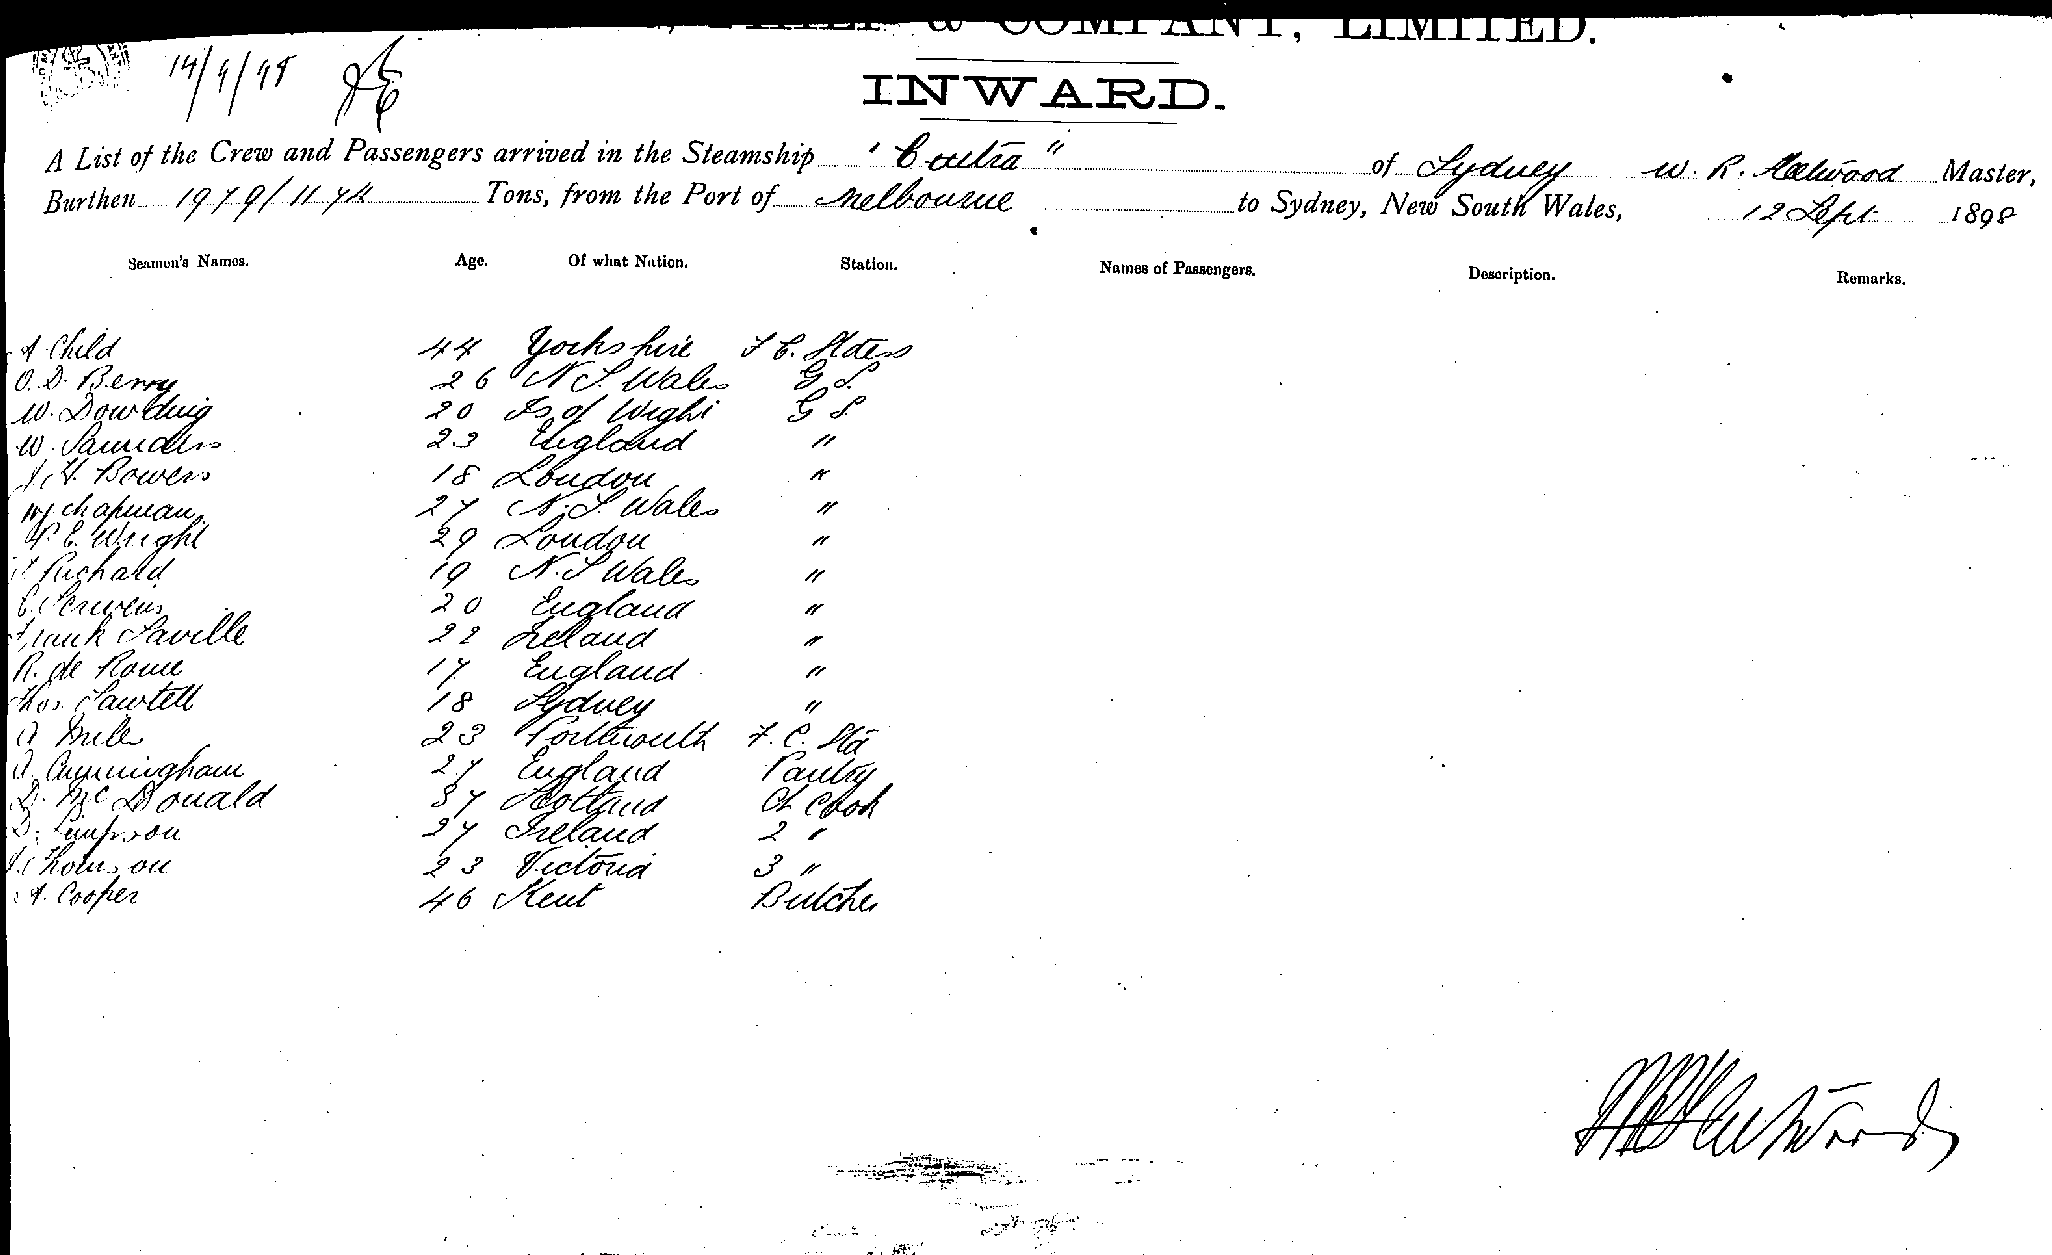 & COMPANY, LIMITED.
14/9/98
INWARD.
A List of the Crew and Passengers arrived in the Steamship " of Sydney W. R. Master,
Burthen 1979/1174 Tons, from the Port of Melbourne to Sydney, New South Wales, 12 Sept 1898
Seamen's Names. Age. Of what Nation. Station. Names of Passengers. Description. Remarks.
A Child 44 Yorkshire F C. Stdess
O. D. Berry 26 N S. Wales G S.
W. Dowding 20 Is of Wight G S
W. Saunders 23 England "
J. H. Bowers 18 London "
W J Chapman 27 N. S. Wales "
P. E. Wright 29 London "
Pichard 19 N. S Wales "
C. Scrivens 20 England "
Frank Saville 22 Ireland "
R. de Rome 17 England "
Thos. Sawtell 18 Sydney "
23 Portsmouth F. C. Std
A. Cunningham 27 England Pantry
D. McDonald 37 Scotland Ch Cook
D. Simpson 27 Ireland 2 "
J. Thomson 23 Victoria 3 "
A. Cooper 46 Kent Butcher